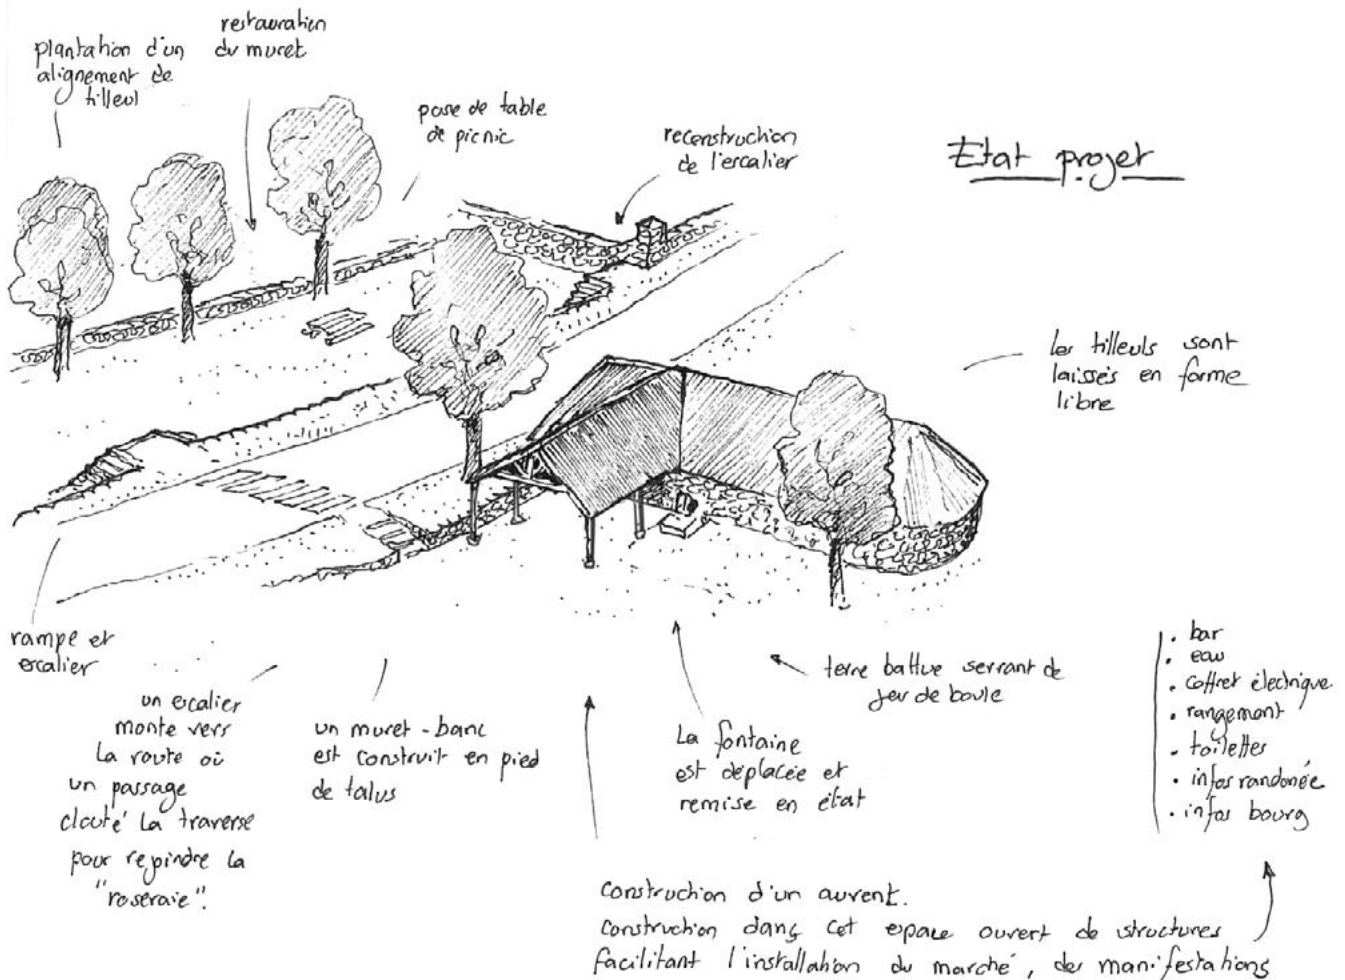 restauration
du muret
plantation d'un
alignement de
tilleul
pose de table
de picnic
reconstruction
de l'escalier
Etat projet
les tilleuls sont
laissés en forme
libre
rampe et
escalier
un escalier
monte vers
la route où
un passage
clouté la traverse
pour rejoindre la
"roseraie".
un muret-banc
est construit en pied
de talus
La fontaine
est déplacée et
remise en état
terre battue servant de
jeu de boule
. bar
. eau
. coffret électrique
. rangement
. toilettes
. infos randonée
. infos bourg
Construction d'un auvent.
Construction dans cet espace ouvert de structures
facilitant l'installation du marché, des manifestations